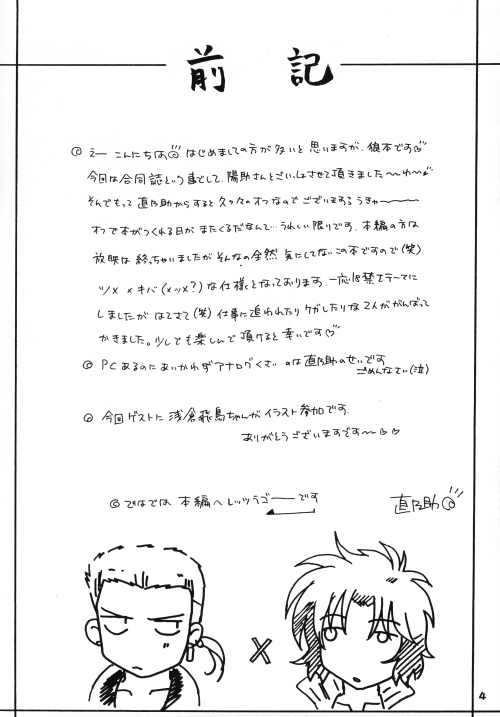 前記
◎ えー こんにちは◎ はじめましての方が多いと思いますが、狼本です♡
今回は合同誌という事でして、陽助さんとごいっしょさせて頂きました〜わ〜
そんでもって直乃助からすると久々のオフなのでございまするうきゃ〜〜〜
オフで本がつくれる日がまたくるだなんて…うれしい限りです。本編の方は
放映は終っちゃいましたがそんなの全然気にしてないこの本ですので(笑)
ツメ×キバ(メッメ?)な仕様となっております、一応18禁をテーマに
しましたがはてさて(笑) 仕事に追われたりケガしたりな2人ががんばって
かきました。少しでも楽しんで頂けると幸いです♡
◎ PCあるのにあいかわらずアナログくさいのは直乃助のせいです
ごめんなさい(泣)
◎ 今回ゲストに浅倉飛鳥ちゃんがイラスト参加です、
ありがとうございますです〜♡♡
◎ ではでは本編へレッツラゴーーです
直乃助◎
×
4